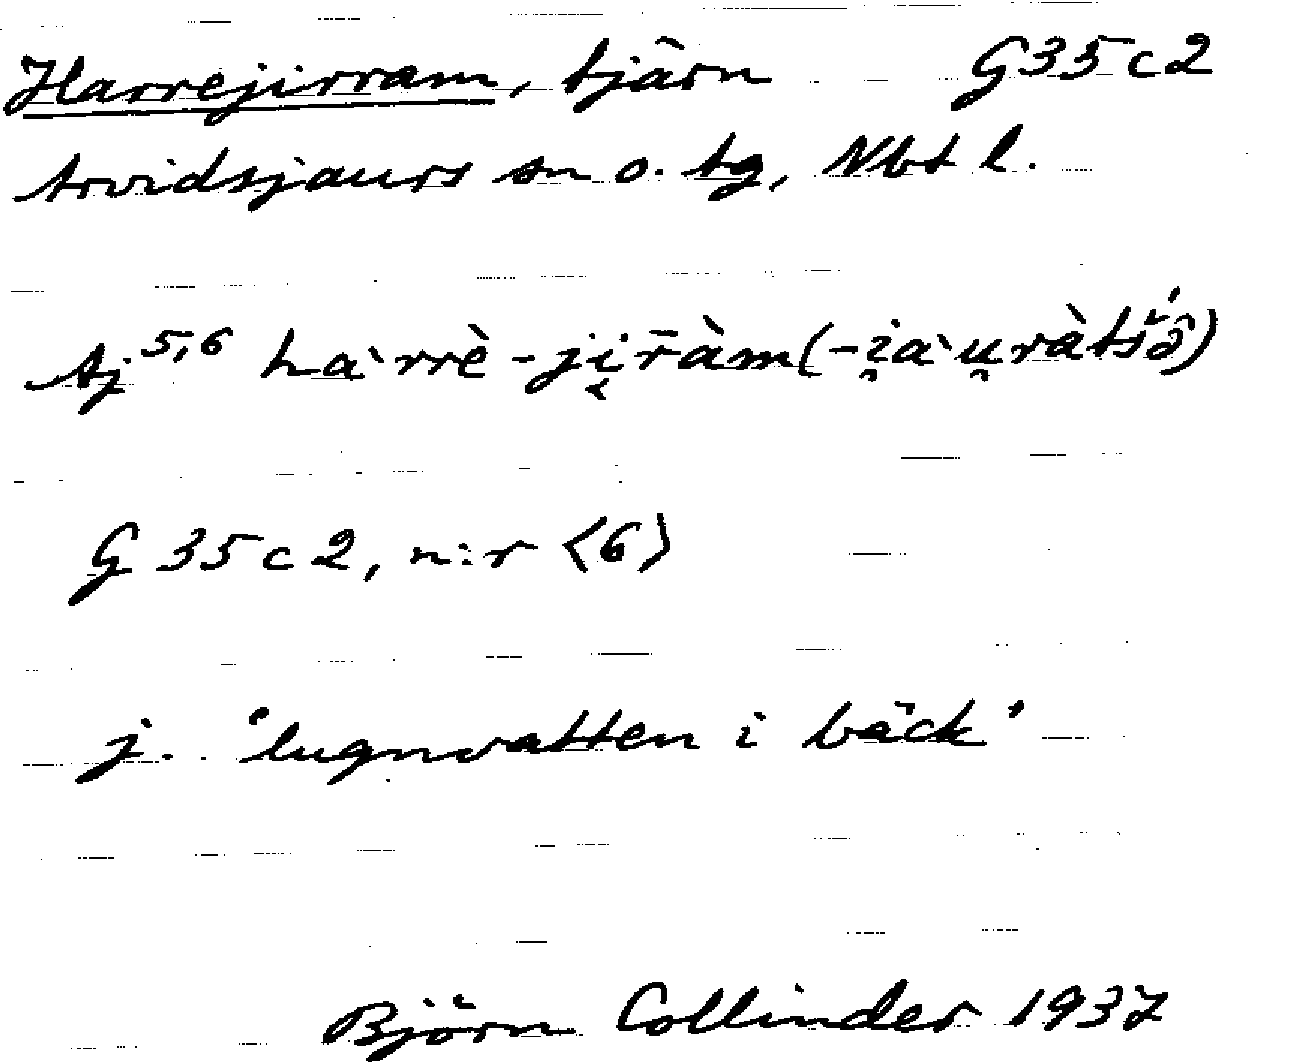 Harrejirram, tjärn G35c2
Arvidsjaurs sn o. tg, Nbt l.
Aj 5,6 ha`rrè-ji̯r̄àm(-i̯a`u̯ràtś́ô)
G 35 c 2, n:r <6>
j. 'lugnvatten i bäck'
Björn Collinder 1937